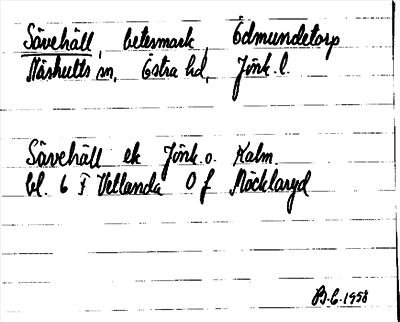 Sävehäll, betesmark, Ödmundetorp
Näshults sn, Östra hd, Jönk. l.
Sävehäll ek Jönk. o. Kalm.
bl. 6 F Vetlanda O f Möcklaryd
B.E. 1958